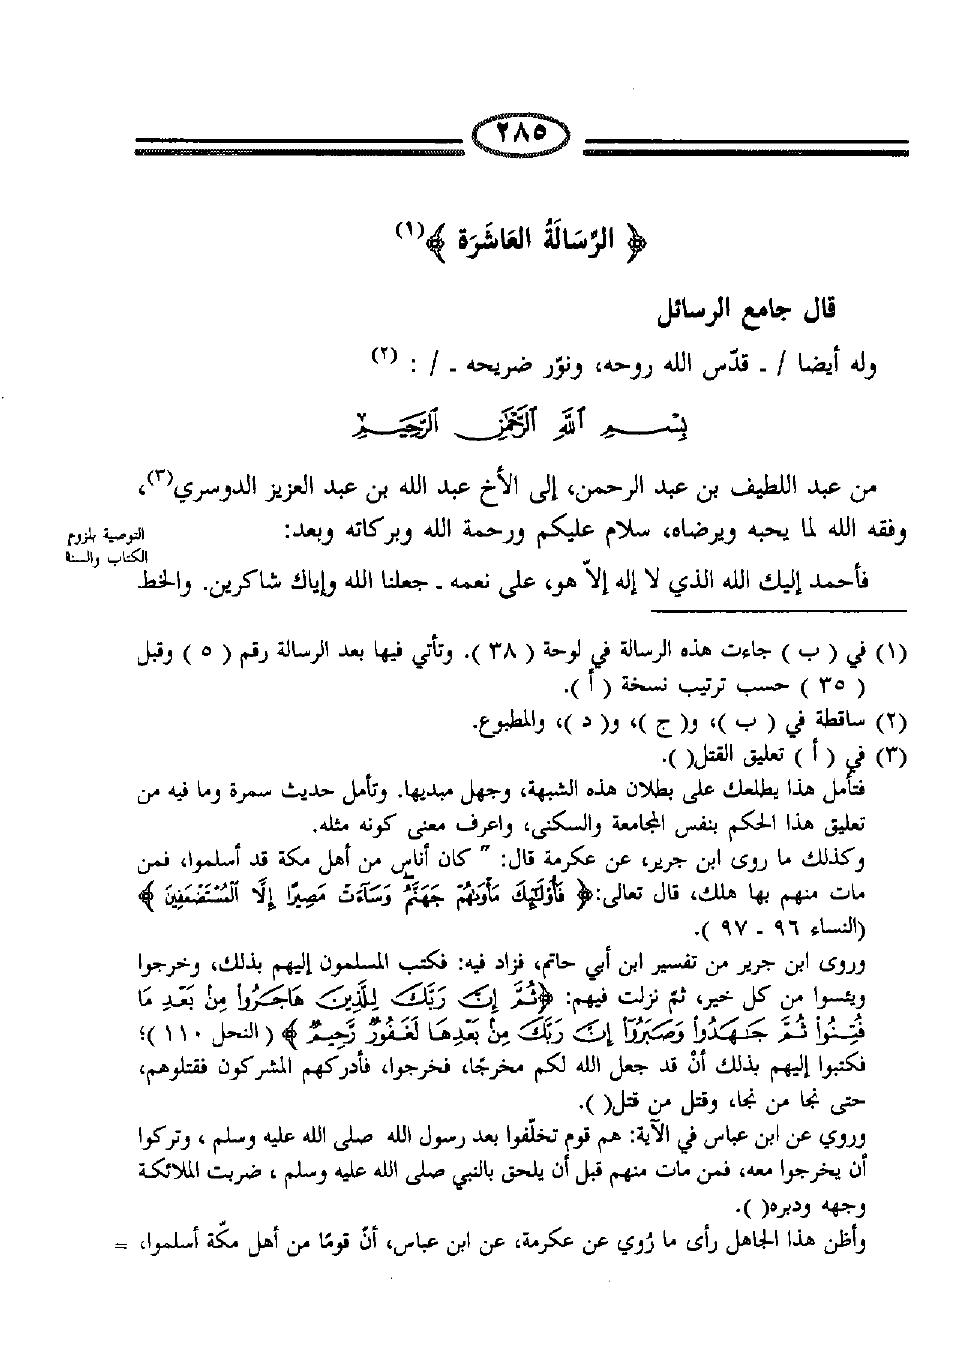 ٢٨٥
﴿ الرِّسَالَةُ العَاشَرَة ﴾(١)
قال جامع الرسائل
وله أيضا / ـ قدّس الله روحه، ونوّر ضريحه ـ / : (٢)
بِسْمِ اللَّهِ الرَّحْمَٰنِ الرَّحِيمِ
من عبد اللطيف بن عبد الرحمن، إلى الأخ عبد الله بن عبد العزيز الدوسري(٣)،
وفقه الله لما يحبه ويرضاه، سلام عليكم ورحمة الله وبركاته وبعد:
التوصية بلزوم
الكتاب والسنة
فأحمد إليك الله الذي لا إله إلاّ هو، على نعمه ـ جعلنا الله وإياك شاكرين. والخط
(١) في ( ب ) جاءت هذه الرسالة في لوحة ( ٣٨ ). وتأتي فيها بعد الرسالة رقم ( ٥ ) وقبل
( ٣٥ ) حسب ترتيب نسخة ( أ ).
(٢) ساقطة في ( ب )، و( ج )، و( د )، والمطبوع.
(٣) في ( أ ) تعليق القتل( ).
فتأمل هذا يطلعك على بطلان هذه الشبهة، وجهل مبديها. وتأمل حديث سمرة وما فيه من
تعليق هذا الحكم بنفس المجامعة والسكنى، واعرف معنى كونه مثله.
وكذلك ما روى ابن جرير، عن عكرمة قال: " كان أناس من أهل مكة قد أسلموا، فمن
مات منهم بها هلك، قال تعالى:﴿ فَأُوْلَٰٓئِكَ مَأْوَىٰهُمْ جَهَنَّمُ وَسَآءَتْ مَصِيرًا إِلَّا ٱلْمُسْتَضْعَفِينَ ﴾
(النساء ٩٦ ـ ٩٧ ).
وروى ابن جرير من تفسير ابن أبي حاتم، فزاد فيه: فكتب المسلمون إليهم بذلك، وخرجوا
ويئسوا من كل خير، ثمّ نزلت فيهم: ﴿ثُمَّ إِنَّ رَبَّكَ لِلَّذِينَ هَاجَرُواْ مِنۢ بَعْدِ مَا
فُتِنُواْ ثُمَّ جَٰهَدُواْ وَصَبَرُوٓاْ إِنَّ رَبَّكَ مِنۢ بَعْدِهَا لَغَفُورٌ رَّحِيمٌ ﴾ ( النحل ١١٠ )؛
فكتبوا إليهم بذلك أنْ قد جعل الله لكم مخرجًا، فخرجوا، فأدركهم المشركون فقتلوهم،
حتى نجا من نجا، وقتل من قتل( ).
وروي عن ابن عباس في الآية: هم قوم تخلّفوا بعد رسول الله صلى الله عليه وسلم ، وتركوا
أن يخرجوا معه، فمن مات منهم قبل أن يلحق بالنبي صلى الله عليه وسلم ، ضربت الملائكة
وجهه ودبره( ).
وأظن هذا الجاهل رأى ما رُوي عن عكرمة، عن ابن عباس، أنّ قومًا من أهل مكّة أسلموا، =